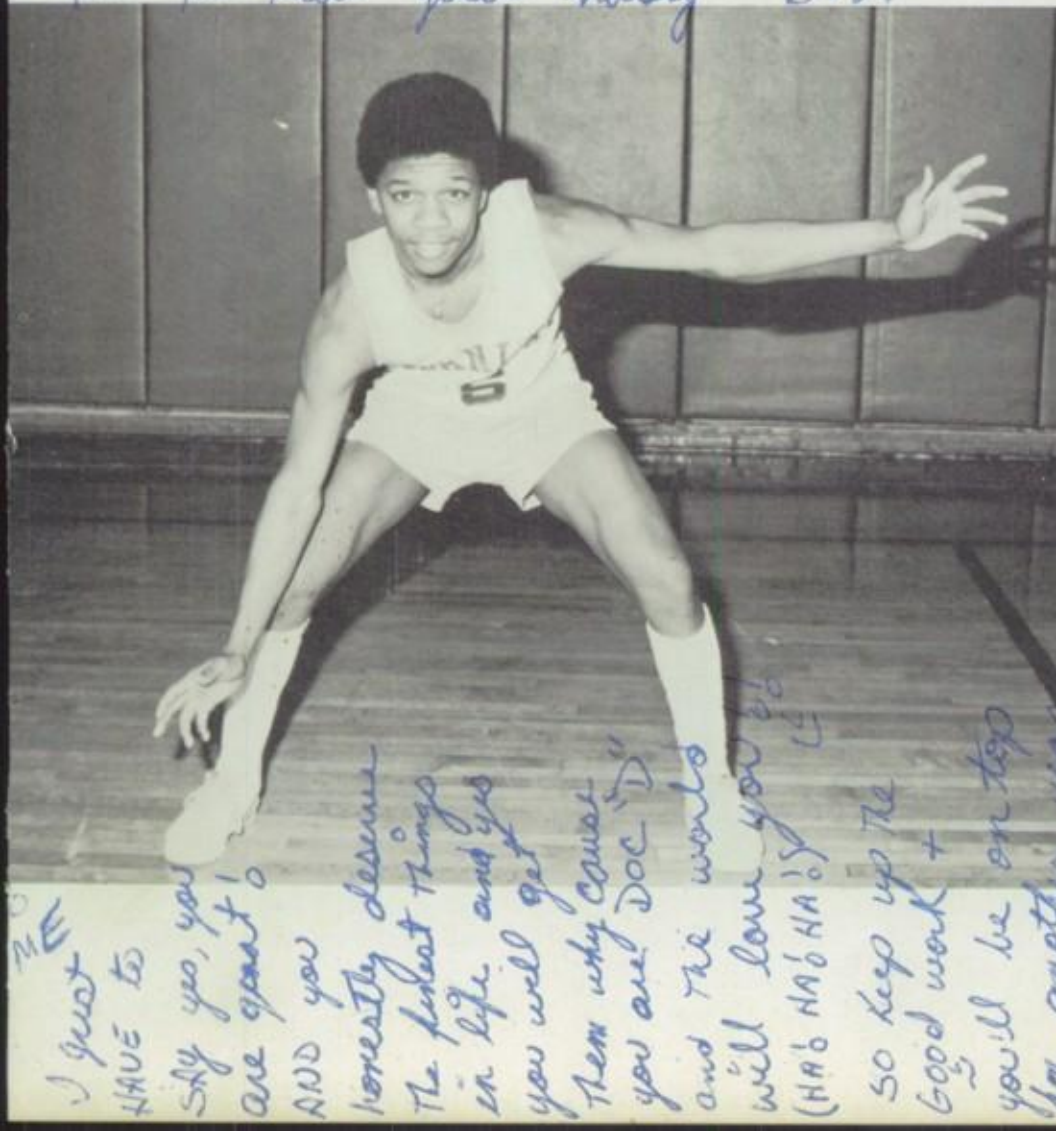 I just
HAVE to
SAY yes, you
are great!
AND you
honestly deserve
the finest things
in life and yes
you will get
them why cause
you are DOC "D"
and the world
will love you!!
(HA! HA! HA!)
SO keep up the
GOOD work +
you'll be on top